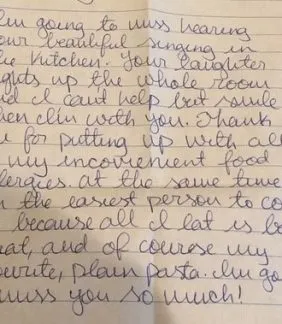 I'm going to miss hearing
our beautiful singing in
e kitchen. Your laughter
ghts up the whole room
d I can't help but smile
hen I'm with you. Thank
u for putting up with all
my inconvenient food
lergies. At the same time
m the easiest person to co
because all I eat is be
eat, and of course my
vourite, plain pasta. I'm go
miss you so much!